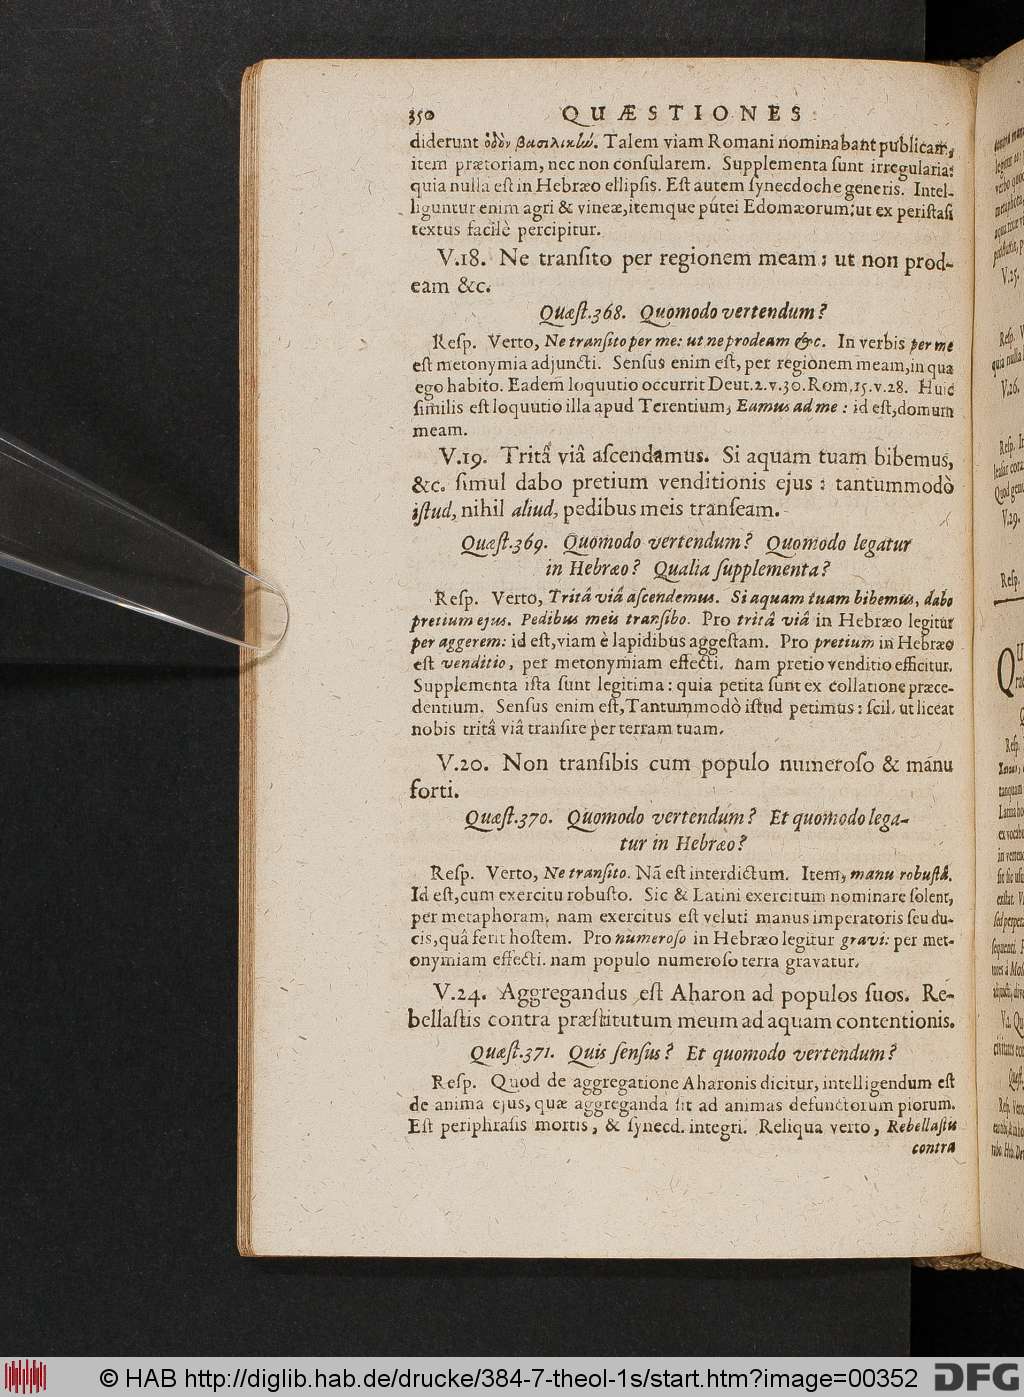 350 QUÆSTIONES
diderunt ὁδὸν βασιλικὴν. Talem viam Romani nominabant publicam,
item prætoriam, nec non conſularem. Supplementa ſunt irregularia:
quia nulla eſt in Hebræo ellipſis. Eſt autem ſynecdoche generis. Intel-
liguntur enim agri & vineæ, itemque putei Edomæorum: ut ex periſtaſi
textus facilè percipitur.
V.18. Ne tranſito per regionem meam: ut non prod-
eam &c.
Quæſt.368. Quomodo vertendum?
Reſp. Verto, Ne tranſito per me: ut ne prodeam &c. In verbis per me
eſt metonymia adjuncti. Senſus enim eſt, per regionem meam, in qua
ego habito. Eadem loquutio occurrit Deut.2.v.30. Rom.15.v.28. Huic
ſimilis eſt loquutio illa apud Terentium, Eamus ad me: id eſt, domum
meam.
V.19. Tritâ viâ aſcendamus. Si aquam tuam bibemus,
&c. ſimul dabo pretium venditionis ejus: tantummodò
iſtud, nihil aliud, pedibus meis tranſeam.
Quæſt.369. Quomodo vertendum? Quomodo legatur
in Hebræo? Qualia ſupplementa?
Reſp. Verto, Tritâ viâ aſcendemus. Si aquam tuam bibemus, dabo
pretium ejus. Pedibus meis tranſibo. Pro tritâ viâ in Hebræo legitur
per aggerem: id eſt, viam è lapidibus aggeſtam. Pro pretium in Hebræo
eſt venditio, per metonymiam effecti. nam pretio venditio efficitur.
Supplementa iſta ſunt legitima: quia petita ſunt ex collatione præce-
dentium. Senſus enim eſt, Tantummodò iſtud petimus: ſcil. ut liceat
nobis tritâ viâ tranſire per terram tuam.
V.20. Non tranſibis cum populo numeroſo & manu
forti.
Quæſt.370. Quomodo vertendum? Et quomodo lega-
tur in Hebræo?
Reſp. Verto, Ne tranſito. Nã eſt interdictum. Item, manu robuſtâ.
Id eſt, cum exercitu robuſto. Sic & Latini exercitum nominare ſolent,
per metaphoram. nam exercitus eſt veluti manus imperatoris ſeu du-
cis, quâ ferit hoſtem. Pro numeroſo in Hebræo legitur gravi: per met-
onymiam effecti. nam populo numeroſo terra gravatur.
V.24. Aggregandus eſt Aharon ad populos ſuos. Re-
bellaſtis contra præſtitutum meum ad aquam contentionis.
Quæſt.371. Quis ſenſus? Et quomodo vertendum?
Reſp. Quod de aggregatione Aharonis dicitur, intelligendum eſt
de anima ejus, quæ aggreganda ſit ad animas defunctorum piorum.
Eſt periphraſis mortis, & ſynecd. integri. Reliqua verto, Rebellaſtis
contra
© HAB http://diglib.hab.de/drucke/384-7-theol-1s/start.htm?image=00352 DFG